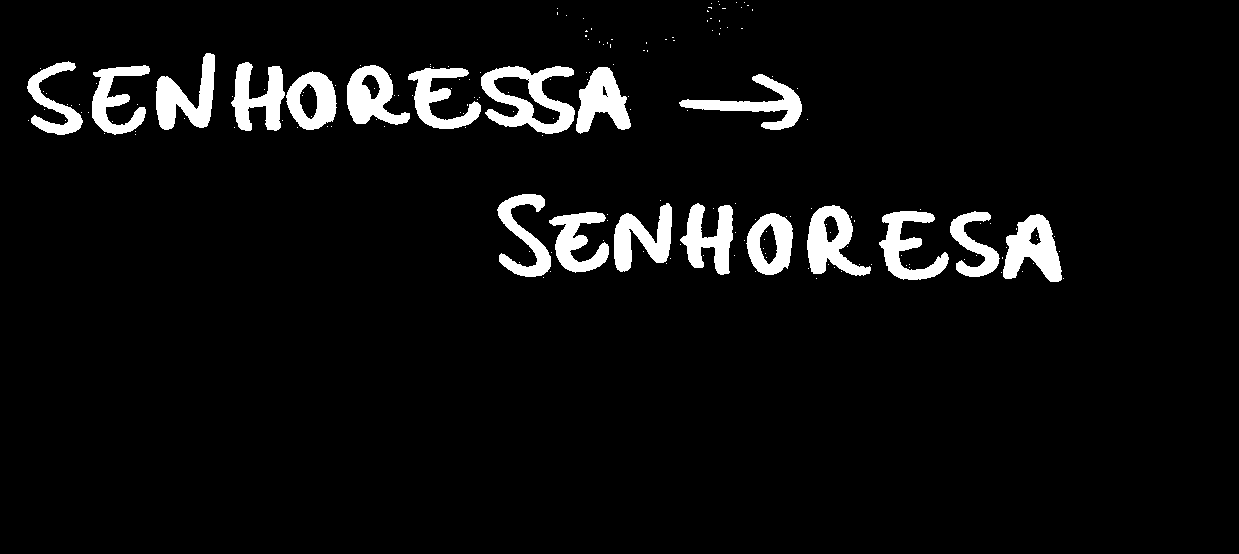 SENHORESSA →
SENHORESA